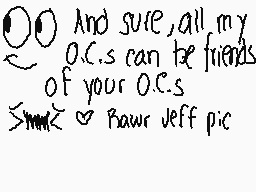 And sure, all my
O.C.s can be friends
of your O.C.s
Rawr Jeff pic